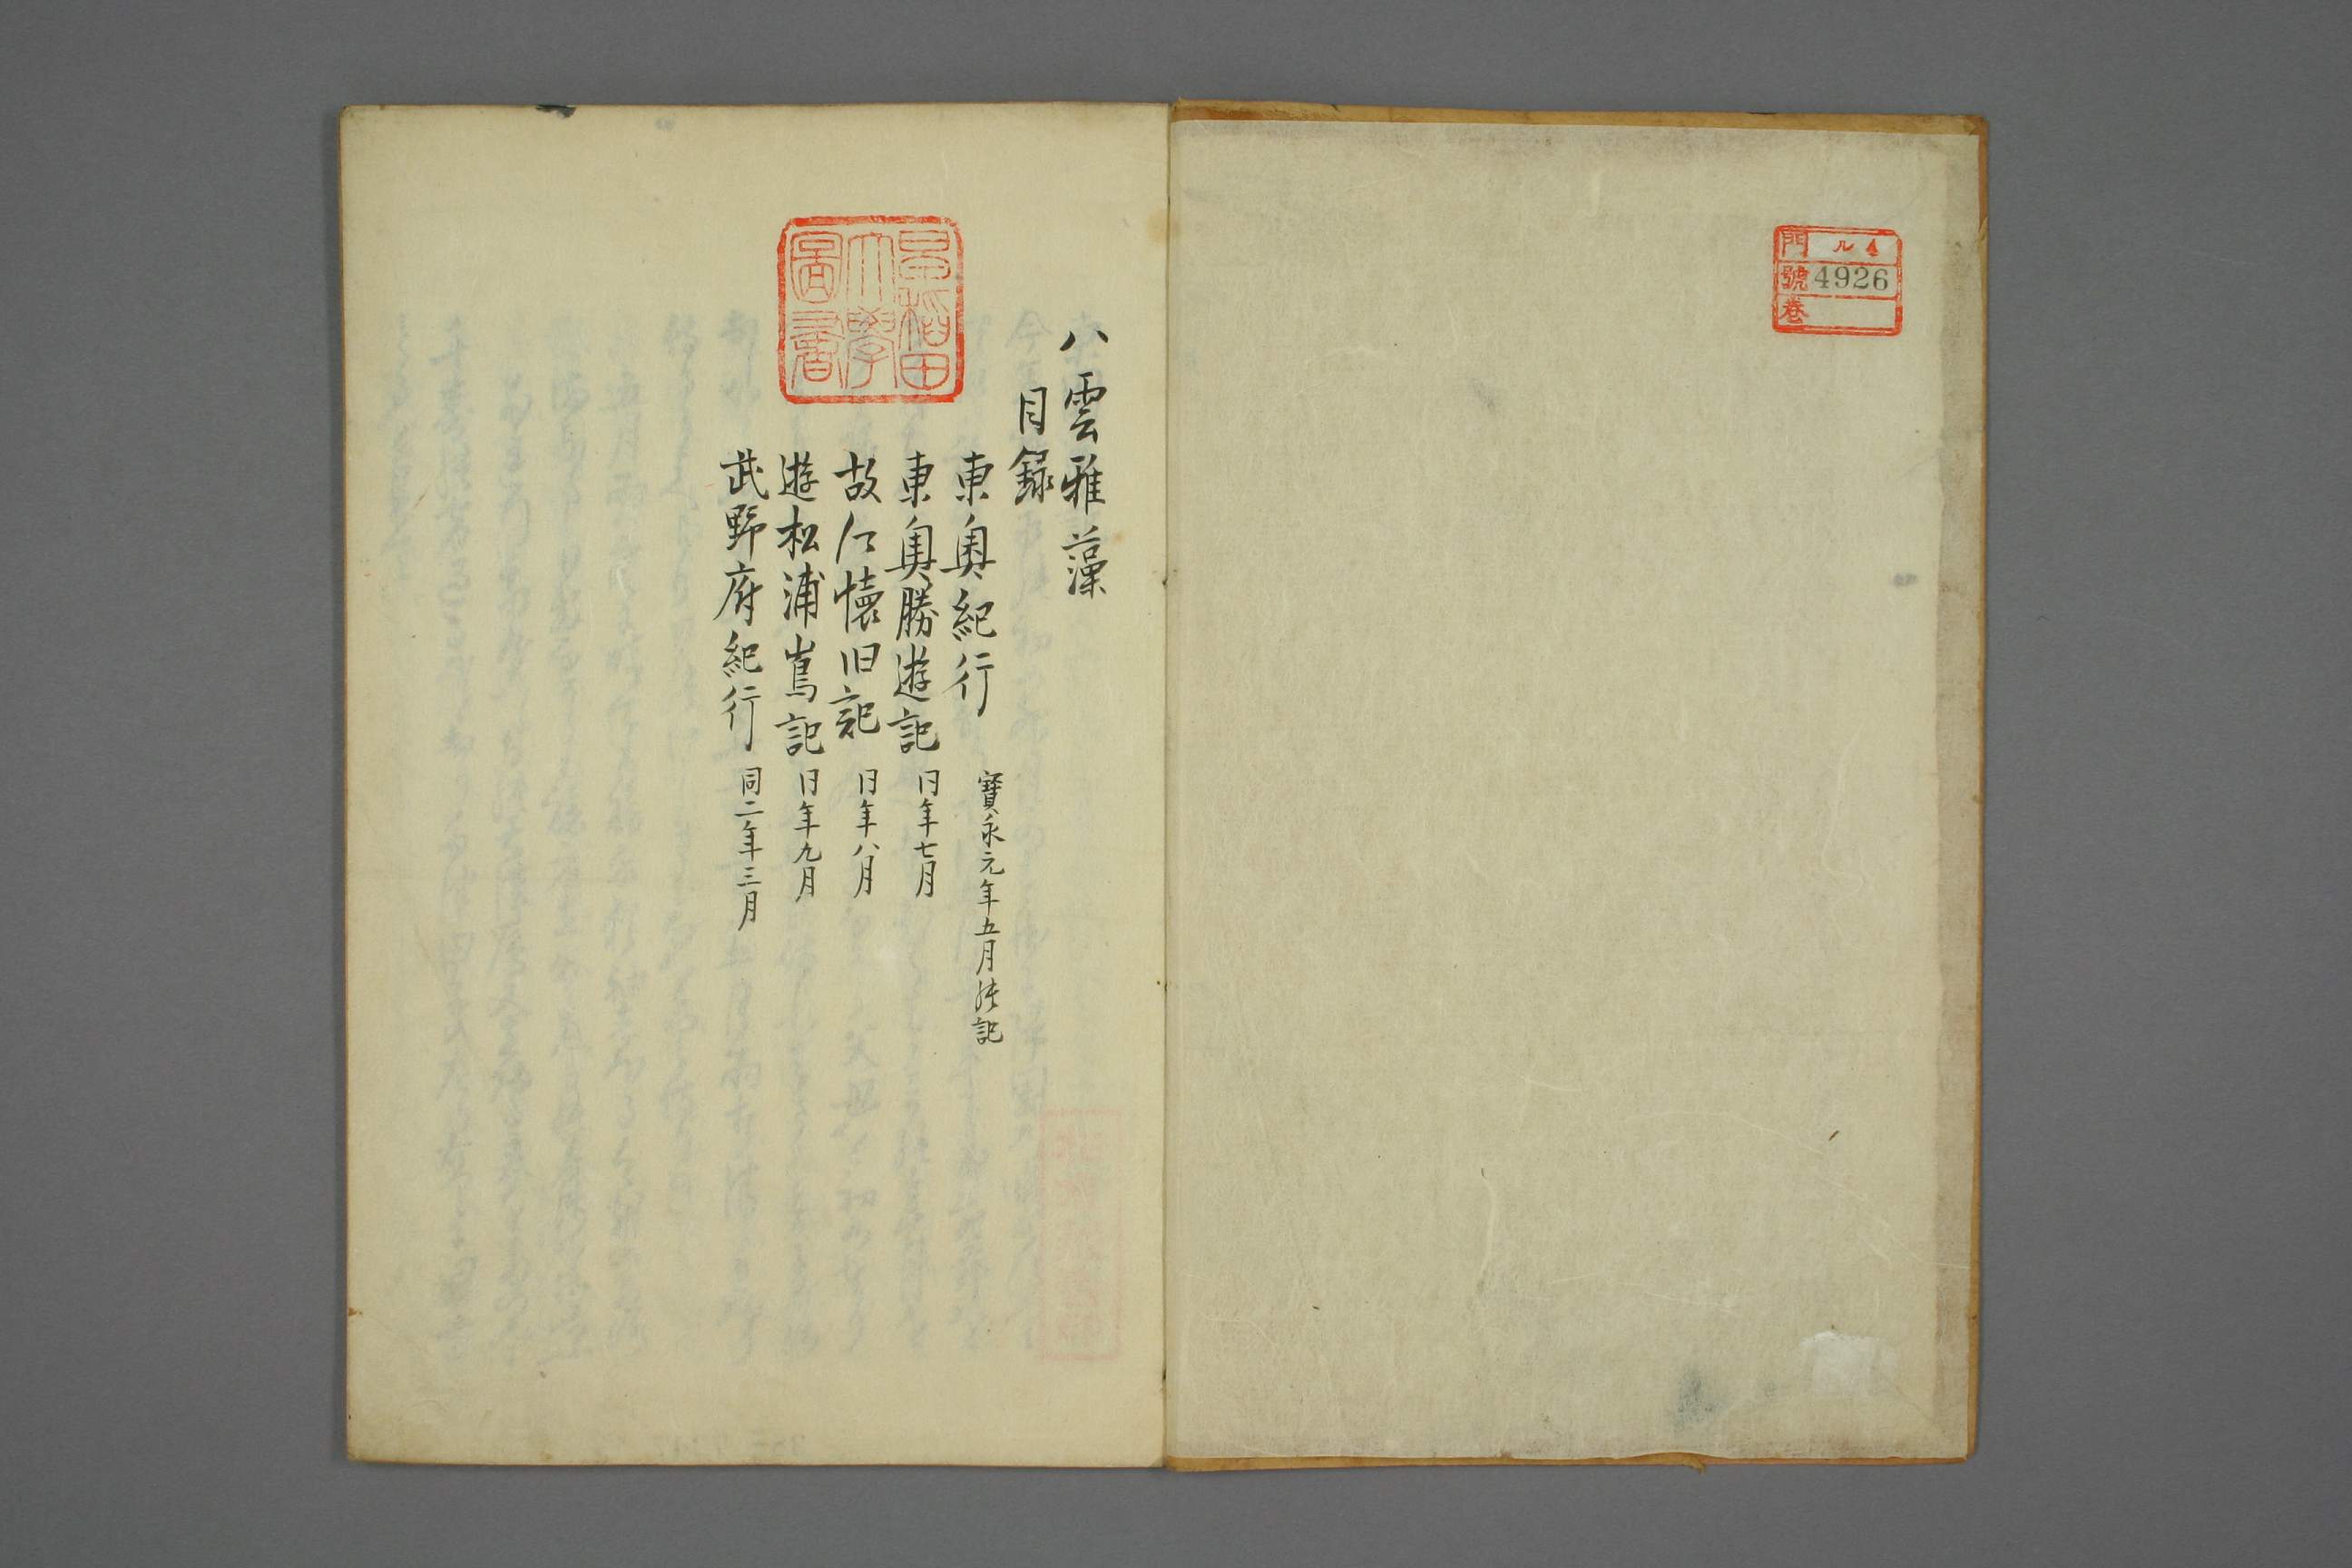 門 ル4
號 4926
卷
八雲雅藻
目録
東奥紀行 寶永元年五月
東奥勝遊記 同年七月
故江懐旧記 同年八月
遊松浦嶌記 同年九月
武野府紀行 同二年三月
早稲田
大學
圖書